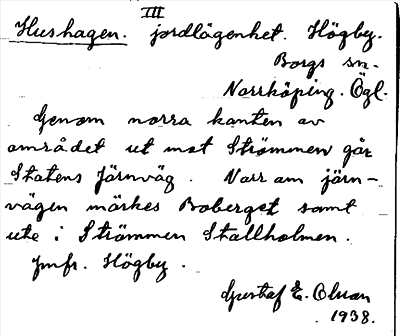 III
Hushagen. jordlägenhet. Högby.
Borgs sn.
Norrköping. Ögl.
Genom norra kanten av
området ut mot Strömmen går
Statens Järnväg. Norr om järn-
vägen märkes Boberget samt
ute i Strömmen Stallholmen.
Jmfr. Högby.
Gustaf E. Olsson
1938.